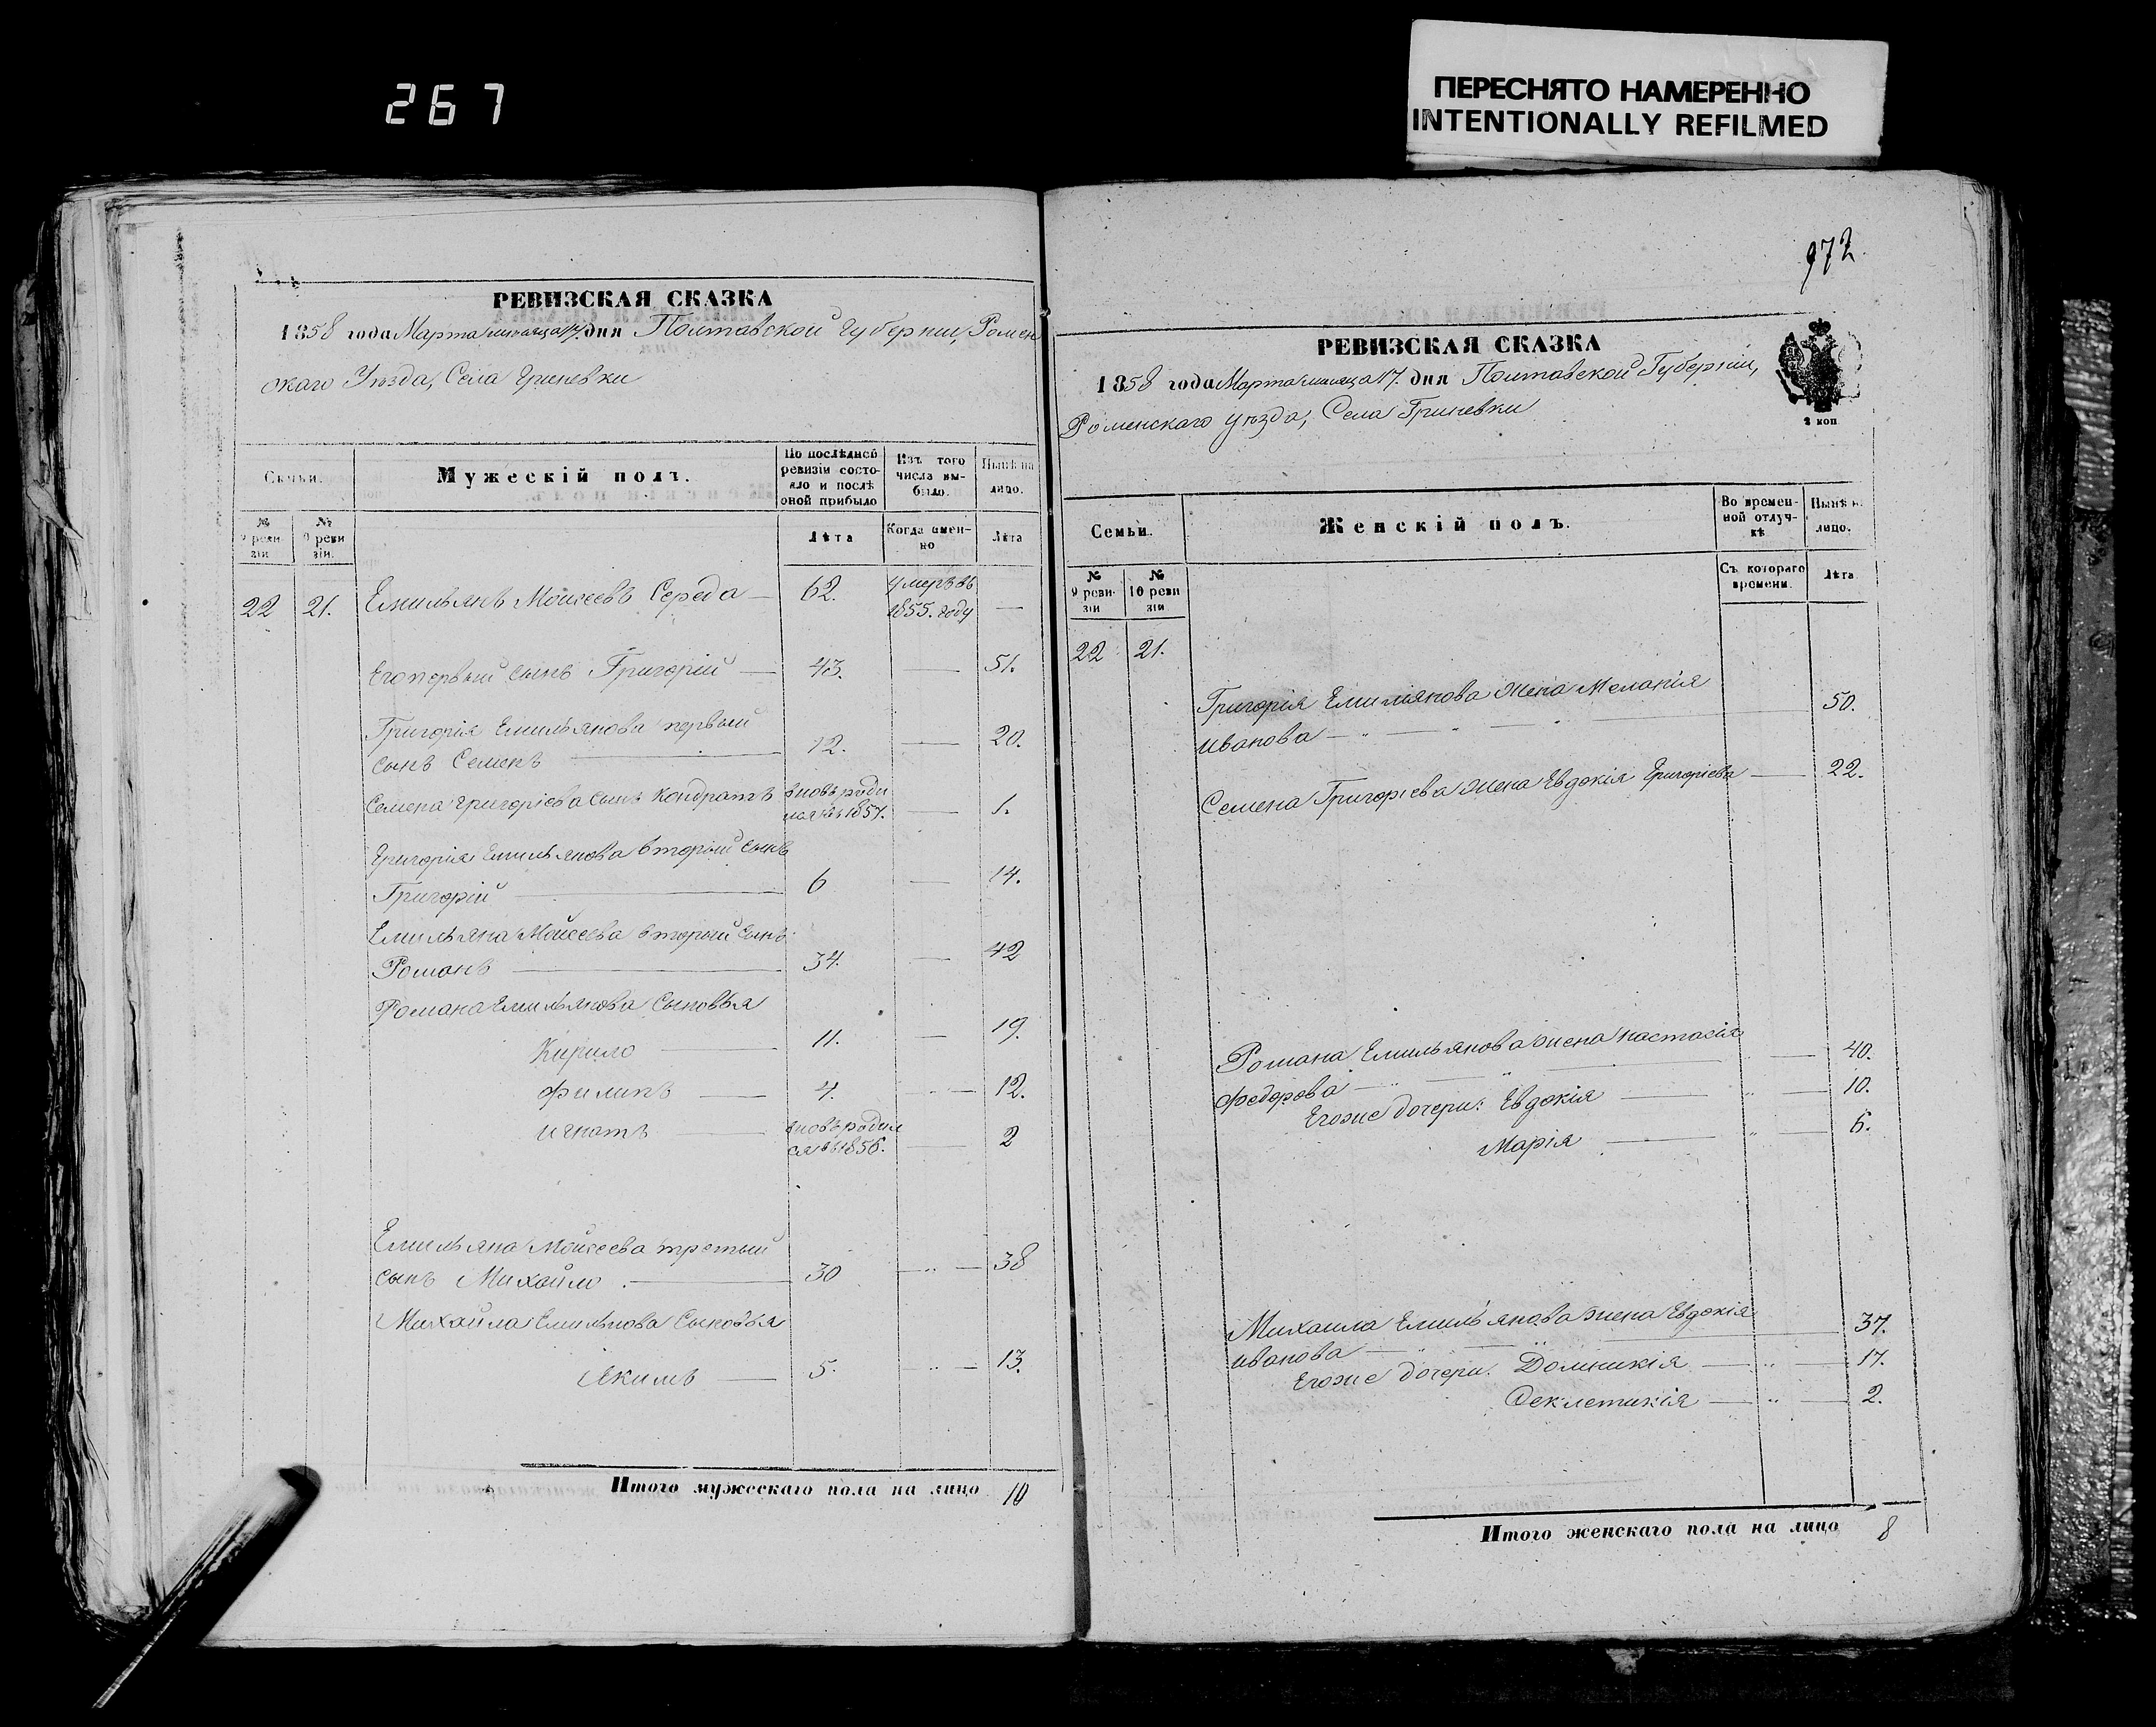 267
ПЕРЕСНЯТО НАМЕРЕННО
INTENTIONALLY REFILMED
РЕВИЗСКАЯ СКАЗКА
1858 года Марта месяца 17. дня Полтавской Губернии, Ромен
скаго Уѣзда, Села Гриневки
Семьи.
Мужескій полъ.
По послѣдней ревизіи состояло и послѣ оной прибыло
Изъ того числа выбыло.
Нынѣ на лицо.
№ 9 ревизіи
№ ревизіи.
Лѣта
Когда именно
Лѣта
22 21. Емильянъ Моисеевъ Середа — 62. Умеръ въ 1855. году —
Его первый сынъ Григорій — 43. — 51.
Григорія Емильянова первый
сынъ Семенъ — 12. — 20.
Семена Григоріева сынъ Кондратъ вновь роди
лся въ 1857. — 1.
Григорія Емильянова вторый сынъ
Григорій — 6 — 14.
Емильяна Моисеева вторый сынъ
Романъ — 34. — 42
Романа Емильянова Сыновья
Кирило — 11. — 19.
Филипъ — 4. — 12.
Игнатъ — вновь родил
ся въ 1856. — 2
Емильяна Моисеева третый
сынъ Михайло — 30 — 38
Михайла Емильнова Сыновья
Якимъ — 5. — 13.
Итого мужескаго пола на лицо 10
972.
РЕВИЗСКАЯ СКАЗКА
1858 года Марта месяца 17. дня Полтавской Губерніи,
Роменскаго уѣзда, Села Гриневки
2 коп
Семьи.
Женскій полъ.
Во временной отлучкѣ
Нынѣ н. лицо.
№ 9 ревизіи
№ 10 ревизіи
Съ котораго времени.
Лѣта
22 21.
Григорія Емильянова Жена Меланія
Иванова — 50.
Семена Григоріева Жена Евдокія Григоріева — 22.
Романа Емильянова жена Настасія
Федорова — 40.
Егоже дочери: Евдокія — 10.
Марія — 6.
Михаила Емильянова жена Евдокія
Иванова — 37.
Егоже дочери. Домникія — 17.
Феклетикія — 2.
Итого женскаго пола на лицо 8